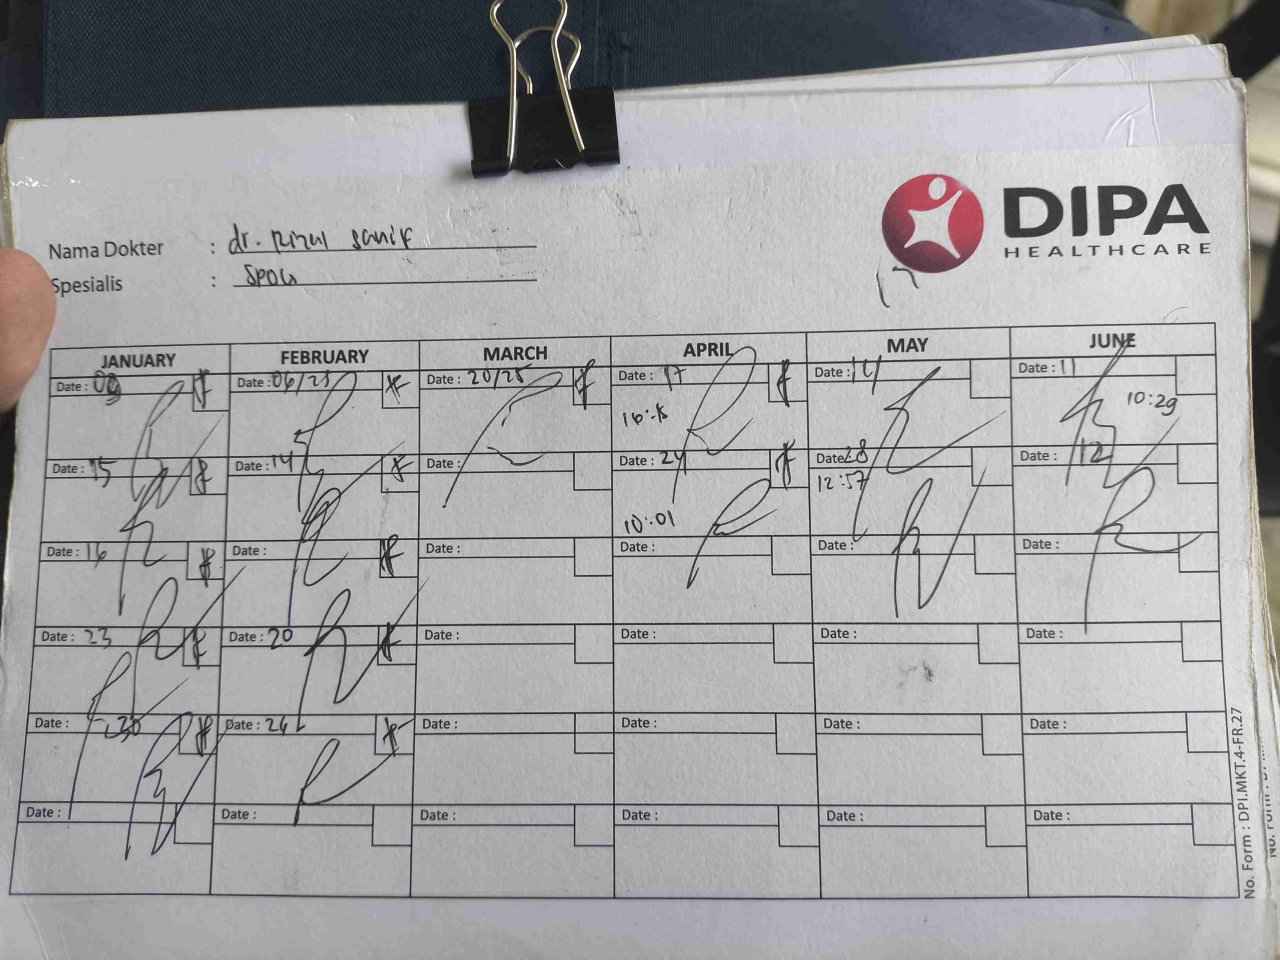 DIPA
HEALTHCARE
Nama Dokter : dr.
Spesialis : SpOG
17
JANUARY FEBRUARY MARCH APRIL MAY JUNE
Date : 09 Date : 06/25 Date : 20/25 Date : 17 Date : 14 Date : 11
10:29
Date : 15 Date : 14 Date : Date : 24 Date : 28 Date : 12
12:57
10:01
Date : 16 Date : Date : Date : Date : Date :
Date : 23 Date : 20 Date : Date : Date : Date :
Date : 30 Date : 26 Date : Date : Date : Date :
Date : Date : Date : Date : Date : Date :
No. Form : DPI.MKT.4-FR.27